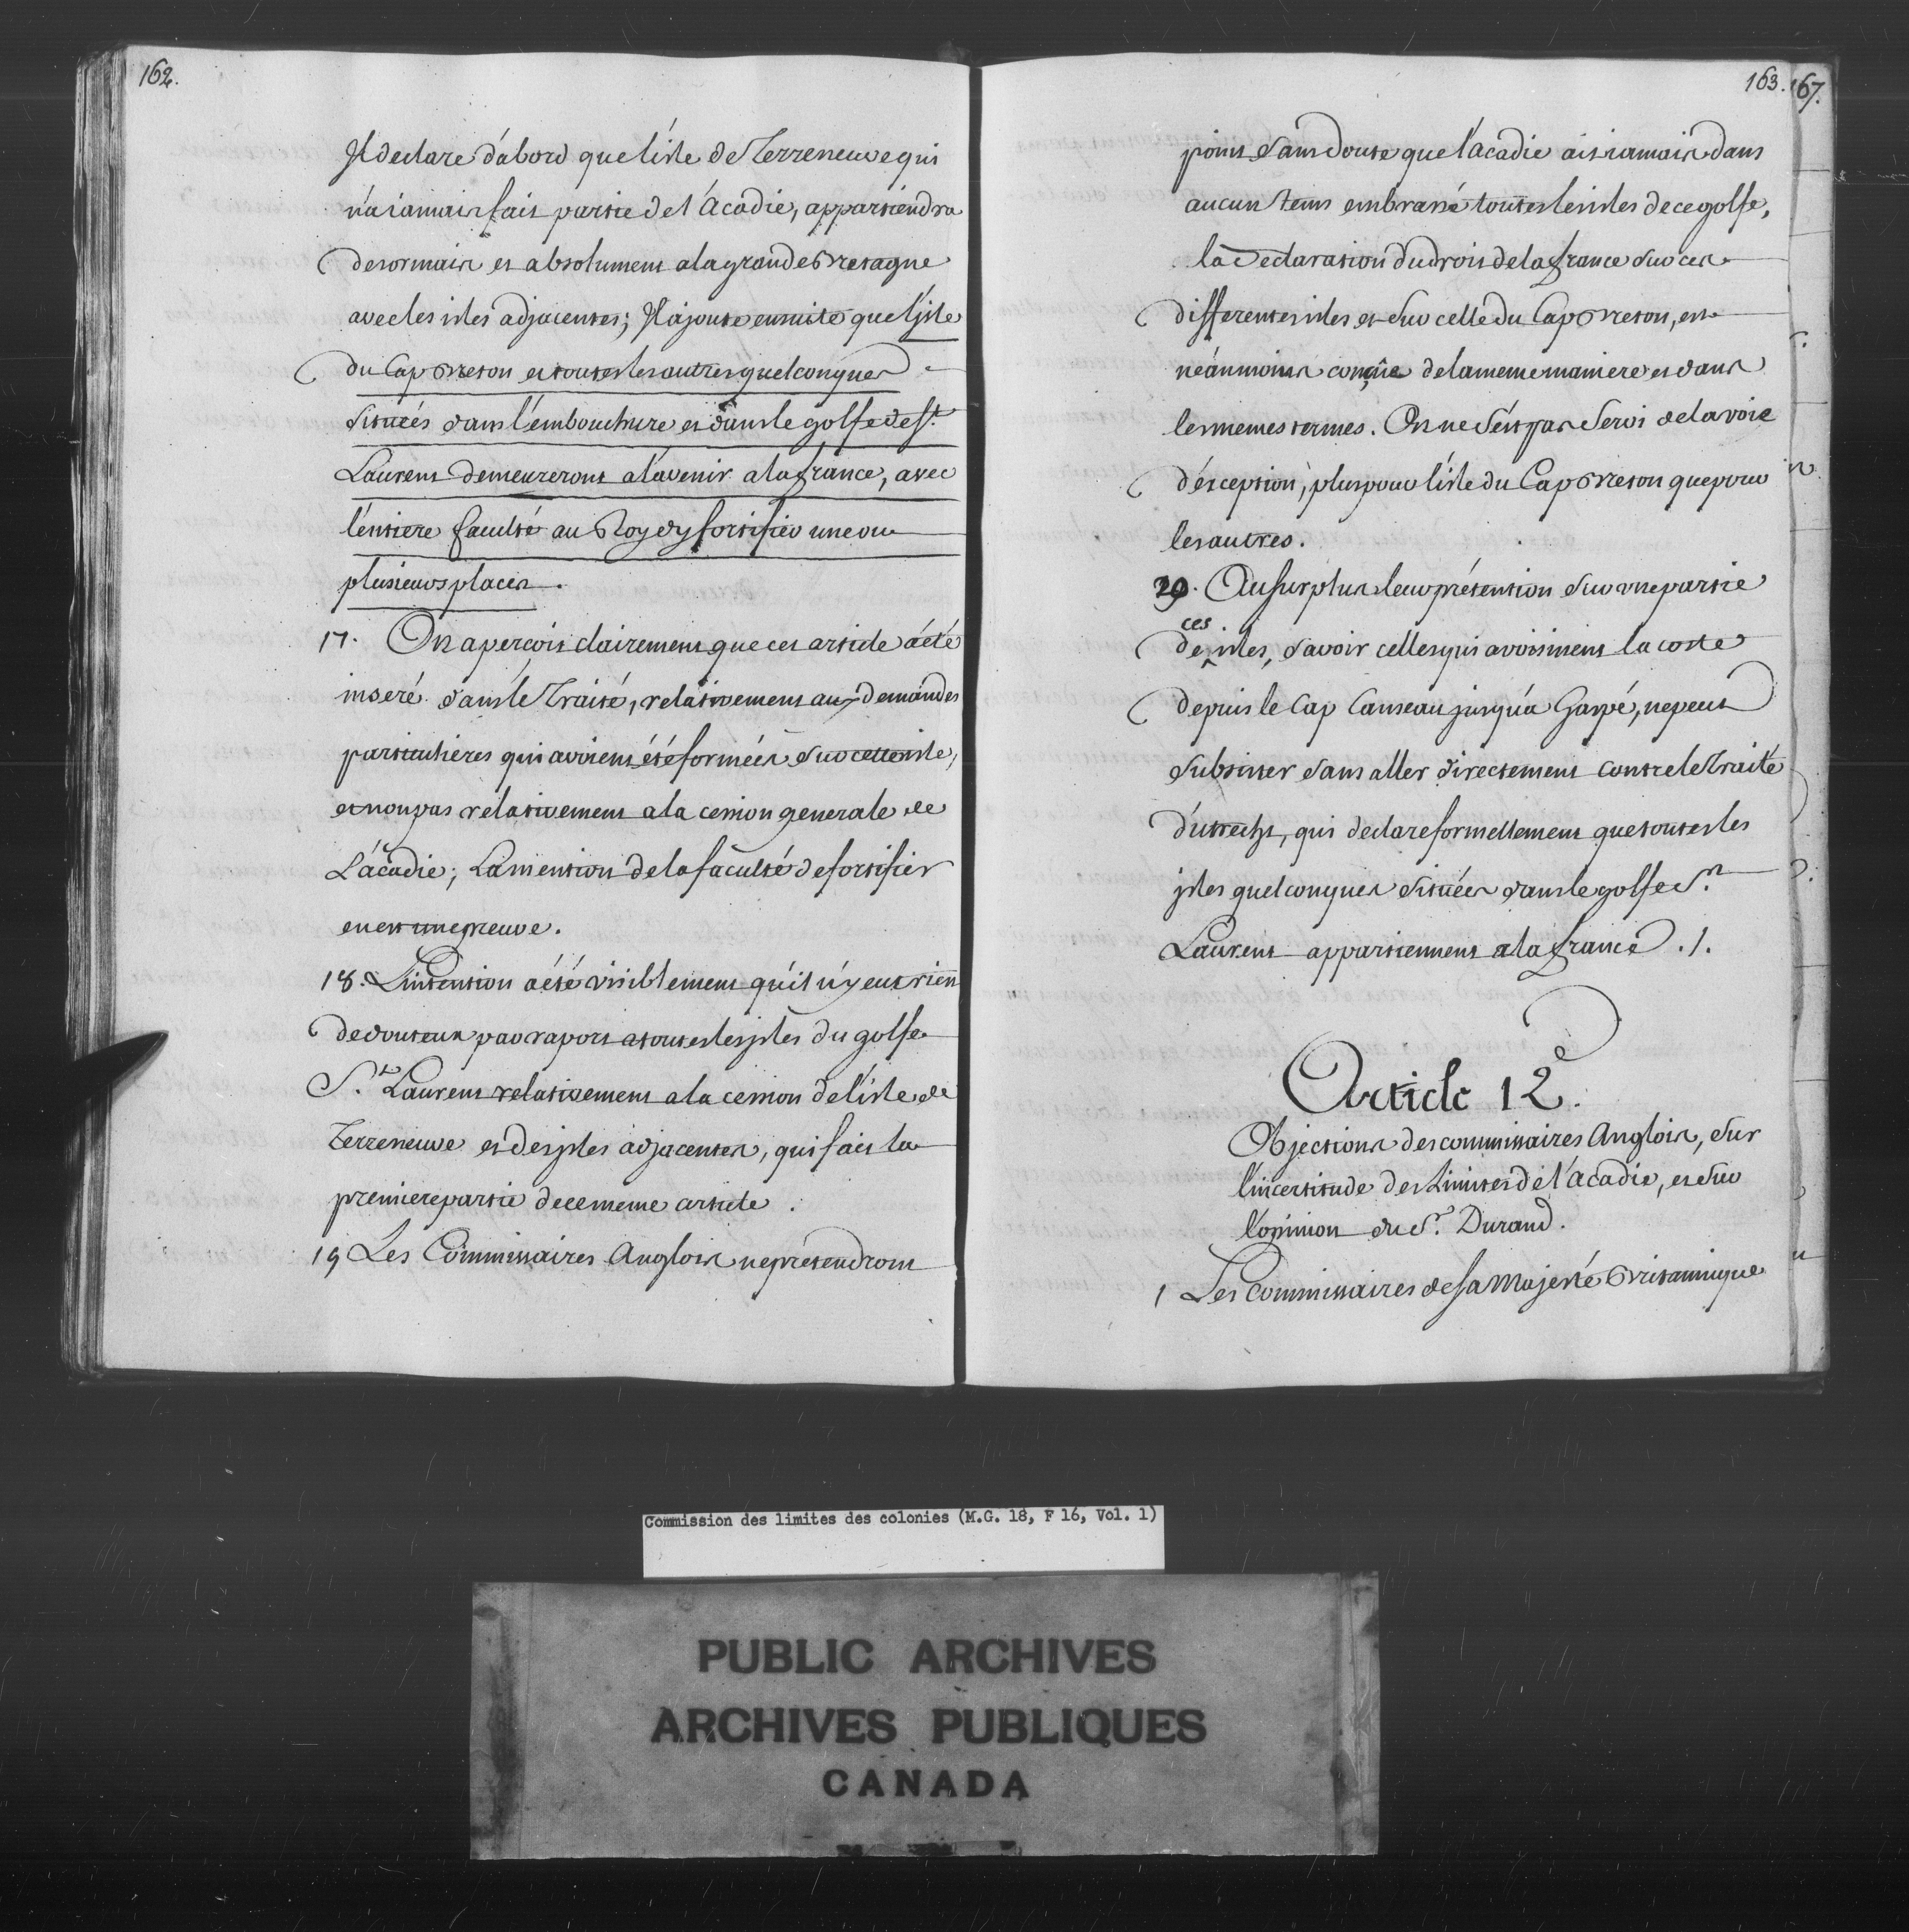 162.
Il declare d'abord que l'isle de Terreneuve qui
n'a iamais fait partie de l'Acadie, appartiendra
desormais et absolument a la grande Bretagne
avec les isles adjacentes; Il ajoute ensuite que l'isle
du Cap Breton et toutes les autres quelconques
situées dans l'embouchure et dans le golfe de St.
Laurent demeureront a l'avenir a la france, avec
l'entiere faculté au Roy d'y fortifier une ou
plusieurs places.
17. On aperçoit clairement que cet article a été
inseré dans le Traité, relativement aux demandes
particulieres qui avoient été formées sur cette isle,
et non pas relativement a la cession generale de
L'acadie; La mention de la faculté de fortifier
en est une preuve.
18. L'intention a été visiblement qu'il n'y eut rien
de douteux par raport a toutes les jsles du golfe
St. Laurent relativement a la cession de l'isle de
Terreneuve et des jsles adjacentes, qui fait la
premiere partie de ce meme article.
19 Les Commissaires Anglois ne prétendront
163.
167.
point sans doute que l'acadie ait iamais dans
aucun tems embrassé toutes les isles de ce golfe,
la declaration du droit de la france sur ces
differentes isles et sur celle du Cap Breton, est
néanmoins conçüe de la meme maniere et dans
les memes termes. On ne s'est pas servi de la voie
d'exception, plus pour l'isle du Cap Breton que pour
les autres.
20. Au surplus leur prétention sur une partie
ces
de isles, savoir celles qui avoisinent la coste
depuis le Cap Canseau jusqu'a Gaspé, ne peut
subsister sans aller directement contre le Traité
d'utrecht, qui declare formellement que toutes les
jsles quelconques situées dans le golfe St.
Laurent appartiennent a la france ./.
Article 12e.
Objections des commissaires Anglois, sur
l'incertitude des Limites de l'Acadie, et sur
l'opinion du Sr. Durand.
1 Les Commissaires de sa Majesté Britannique
Commission des limites des colonies (M.G. 18, F 16, Vol. 1)
PUBLIC ARCHIVES
ARCHIVES PUBLIQUES
CANADA